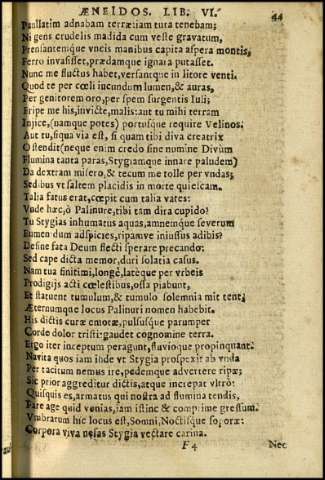 ÆNEIDOS. LIB. VI.
44
Paullatim adnabam terræ: iam tuta tenebam;
Ni gens crudelis madida cum veste gravatum,
Prensantemque vncis manibus capita aspera montis,
Ferro invasisset, prædamque ignara putasset.
Nunc me fluctus habet, versantque in litore venti.
Quod te per cœli iucundum lumen, & auras,
Per genitorem oro, per spem surgentis Iuli;
Eripe me his, invicte, malis: aut tu mihi terram
Injice, (namque potes) portusque require Velinos.
Aut tu, si qua via est, si quam tibi diva creatrix
Ostendit (neque enim credo sine numine Divûm
Flumina tanta paras, Stygiamque innare paludem)
Da dextram misero, & tecum me tolle per vndas;
Sedibus vt saltem placidis in morte quiescam.
Talia fatus erat, cœpit cum talia vates:
Vnde hæc, ô Palinure, tibi tam dira cupido?
Tu Stygias inhumatus aquas, amnemque severum
Eumenidum adspicies, ripamve iniussus adibis?
Desine fata Deum flecti sperare precando:
Sed cape dicta memor, duri solatia casus.
Nam tua finitimi, longè, latèque per vrbeis
Prodigijs acti cœlestibus, ossa piabunt,
Et statuent tumulum, & tumulo solemnia mittent;
Æternumque locus Palinuri nomen habebit.
His dictis curæ emotæ, pulsusque parumper
Corde dolor tristi: gaudet cognomine terra.
Ergo iter inceptum peragunt, fluvioque propinquant.
Navita quos iam inde vt Stygia prospexit ab vnda
Per tacitum nemus ire, pedemque advertere ripæ;
Sic prior aggreditur dictis, atque increpat vltrò:
Quisquis es, armatus qui nostra ad flumina tendis,
Fare age quid venias, iam istinc & comprime gressum.
Vmbrarum hic locus est, Somni, Noctisque soporæ:
Corpora viva nefas Stygia vectare carina.
F 4
Nec